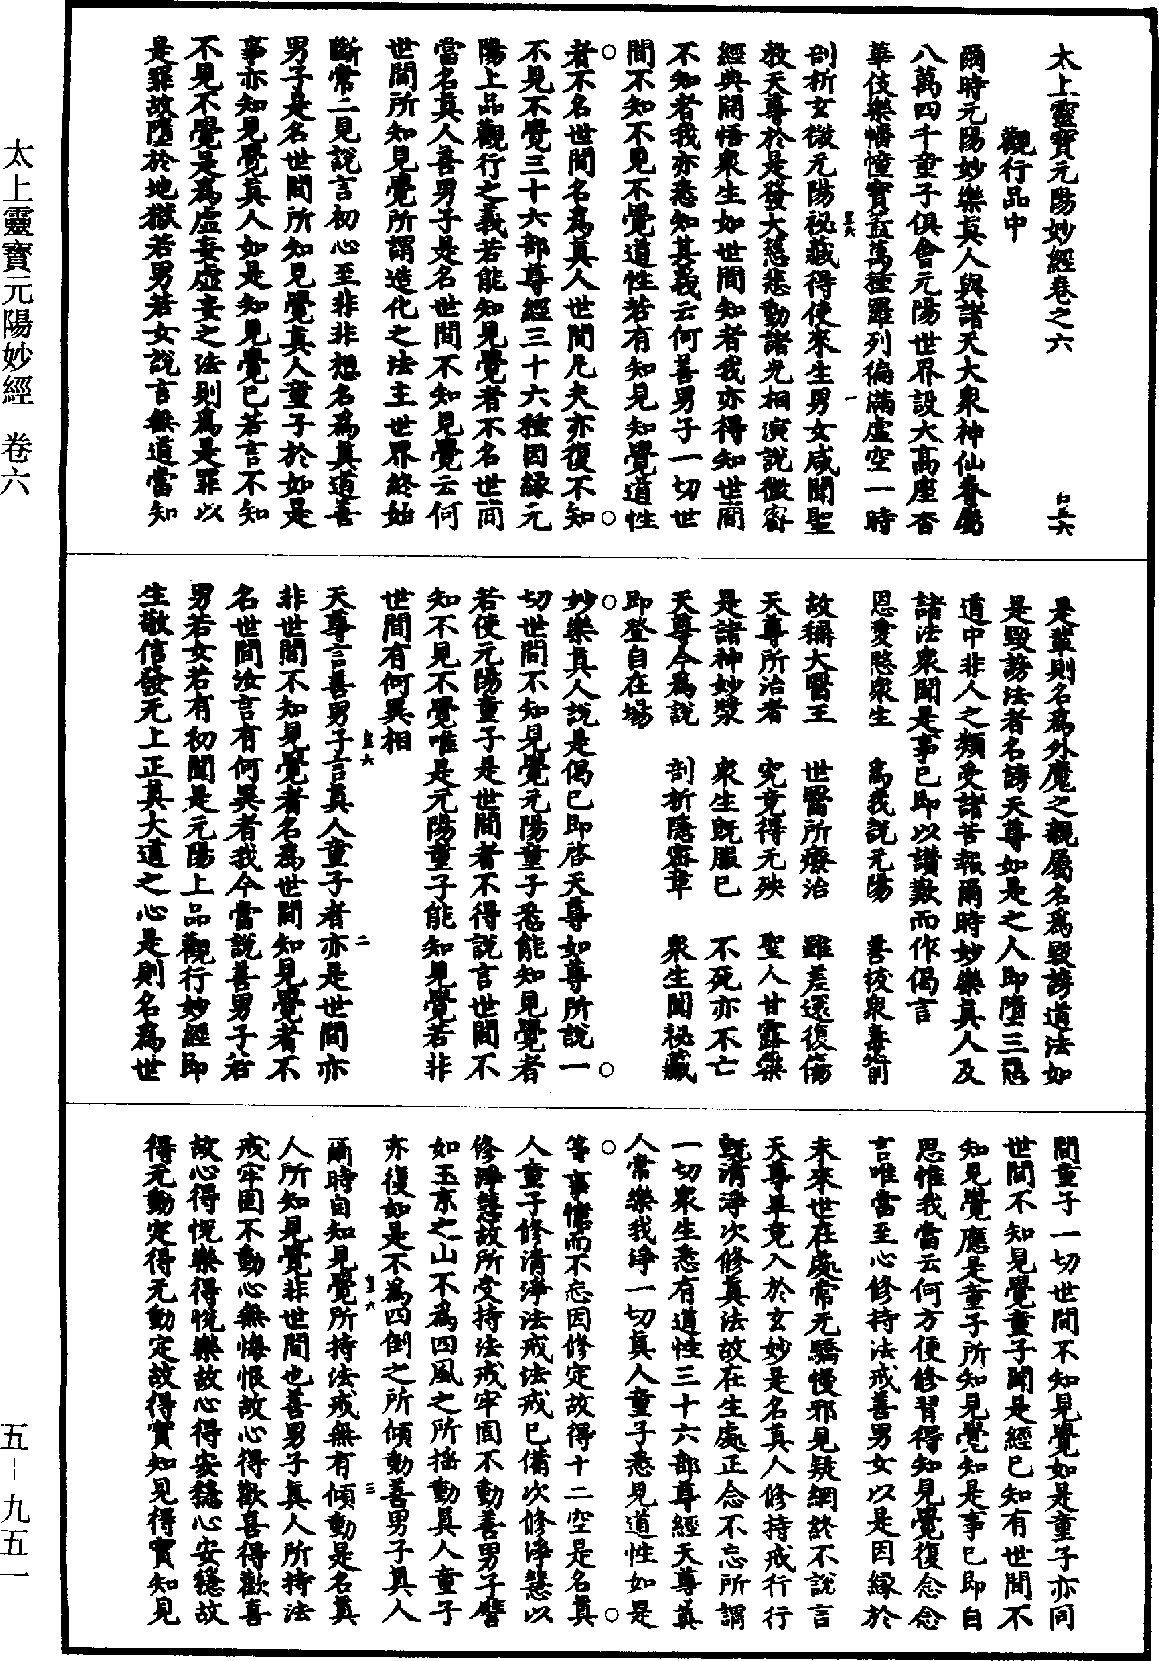 太上靈寶元陽妙經卷之六
觀行品中
爾時元陽妙樂真人與諸天大衆神仙眷屬
八萬四千童子俱會元陽世界設大高座香
華伎樂幡幢寶蓋萬種羅列徧滿虛空一時
剖析玄微元陽祕藏得使衆生男女咸聞聖
教天尊於是發大慈悲動諸光相演說微密
經典開悟衆生如世間知者我亦得知世間
不知者我亦悉知其義云何善男子一切世
間不知不見不覺道性若有知見知覺道性
者不名世間名爲真人世間凡夫亦復不知
不見不覺三十六部尊經三十六種因緣元
陽上品觀行之義若能知見覺者不名世間
當名真人善男子是名世間不知見覺云何
世間所知見覺所謂造化之法主世界終始
斷常二見說言初心至非非想名爲真道善
男子是名世間所知見覺真人童子於如是
事亦知見覺真人如是知見覺已若言不知
不見不覺是爲虛妄虛妄之法則爲是罪以
是罪故墮於地獄若男若女說言無道當知
是輩則名爲外魔之親屬名爲毀謗道法如
是毀謗法者名謗天尊如是之人即墮三惡
道中非人之類受諸苦報爾時妙樂真人及
諸法衆聞是事已即以讚歎而作偈言
恩愛愍衆生　爲我說元陽　善拔衆毒箭
故稱大醫王　世醫所療治　雖差還復傷
天尊所治者　究竟得無殃　聖人甘露藥
是諸神妙漿　衆生既服已　不死亦不亡
天尊今爲說　剖析隱密章　衆生聞祕藏
即登自在場
妙樂真人說是偈已即啓天尊如尊所說一
切世間不知見覺元陽童子悉能知見覺者
若使元陽童子是世間者不得說言世間不
知不見不覺唯是元陽童子能知見覺若非
世間有何異相
天尊言善男子言真人童子者亦是世間亦
非世間不知見覺者名爲世間知見覺者不
名世間汝言有何異者我今當說善男子若
男若女若有初聞是元陽上品觀行妙經即
生敬信發無上正真大道之心是則名爲世
間童子一切世間不知見覺如是童子亦同
世間不知見覺童子聞是經已知有世間不
知見覺應是童子所知見覺知是事已即自
思惟我當云何方便修習得知見覺復念念
言唯當至心修持法戒善男女以是因緣於
未來世在處常無驕慢邪見疑網終不說言
天尊畢竟入於玄妙是名真人修持戒行行
既清淨次修真法故在生處正念不忘所謂
一切衆生悉有道性三十六部尊經天尊真
人常樂我諍一切真人童子悉見道性如是
等事憶而不忘因修定故得十二空是名真
人童子修清淨法戒法戒已備次修淨慧以
修淨慧故所受持法戒牢固不動善男子譬
如玉京之山不爲四風之所搖動真人童子
亦復如是不爲四倒之所傾動善男子真人
爾時自知見覺所持法戒無有傾動是名真
人所知見覺非世間也善男子真人所持法
戒牢固不動心無悔恨故心得歡喜得歡喜
故心得悅樂得悅樂故心得安穩心安穩故
得無動定得無動定故得實知見得實知見
太上靈寶元陽妙經　卷六
五－九五一